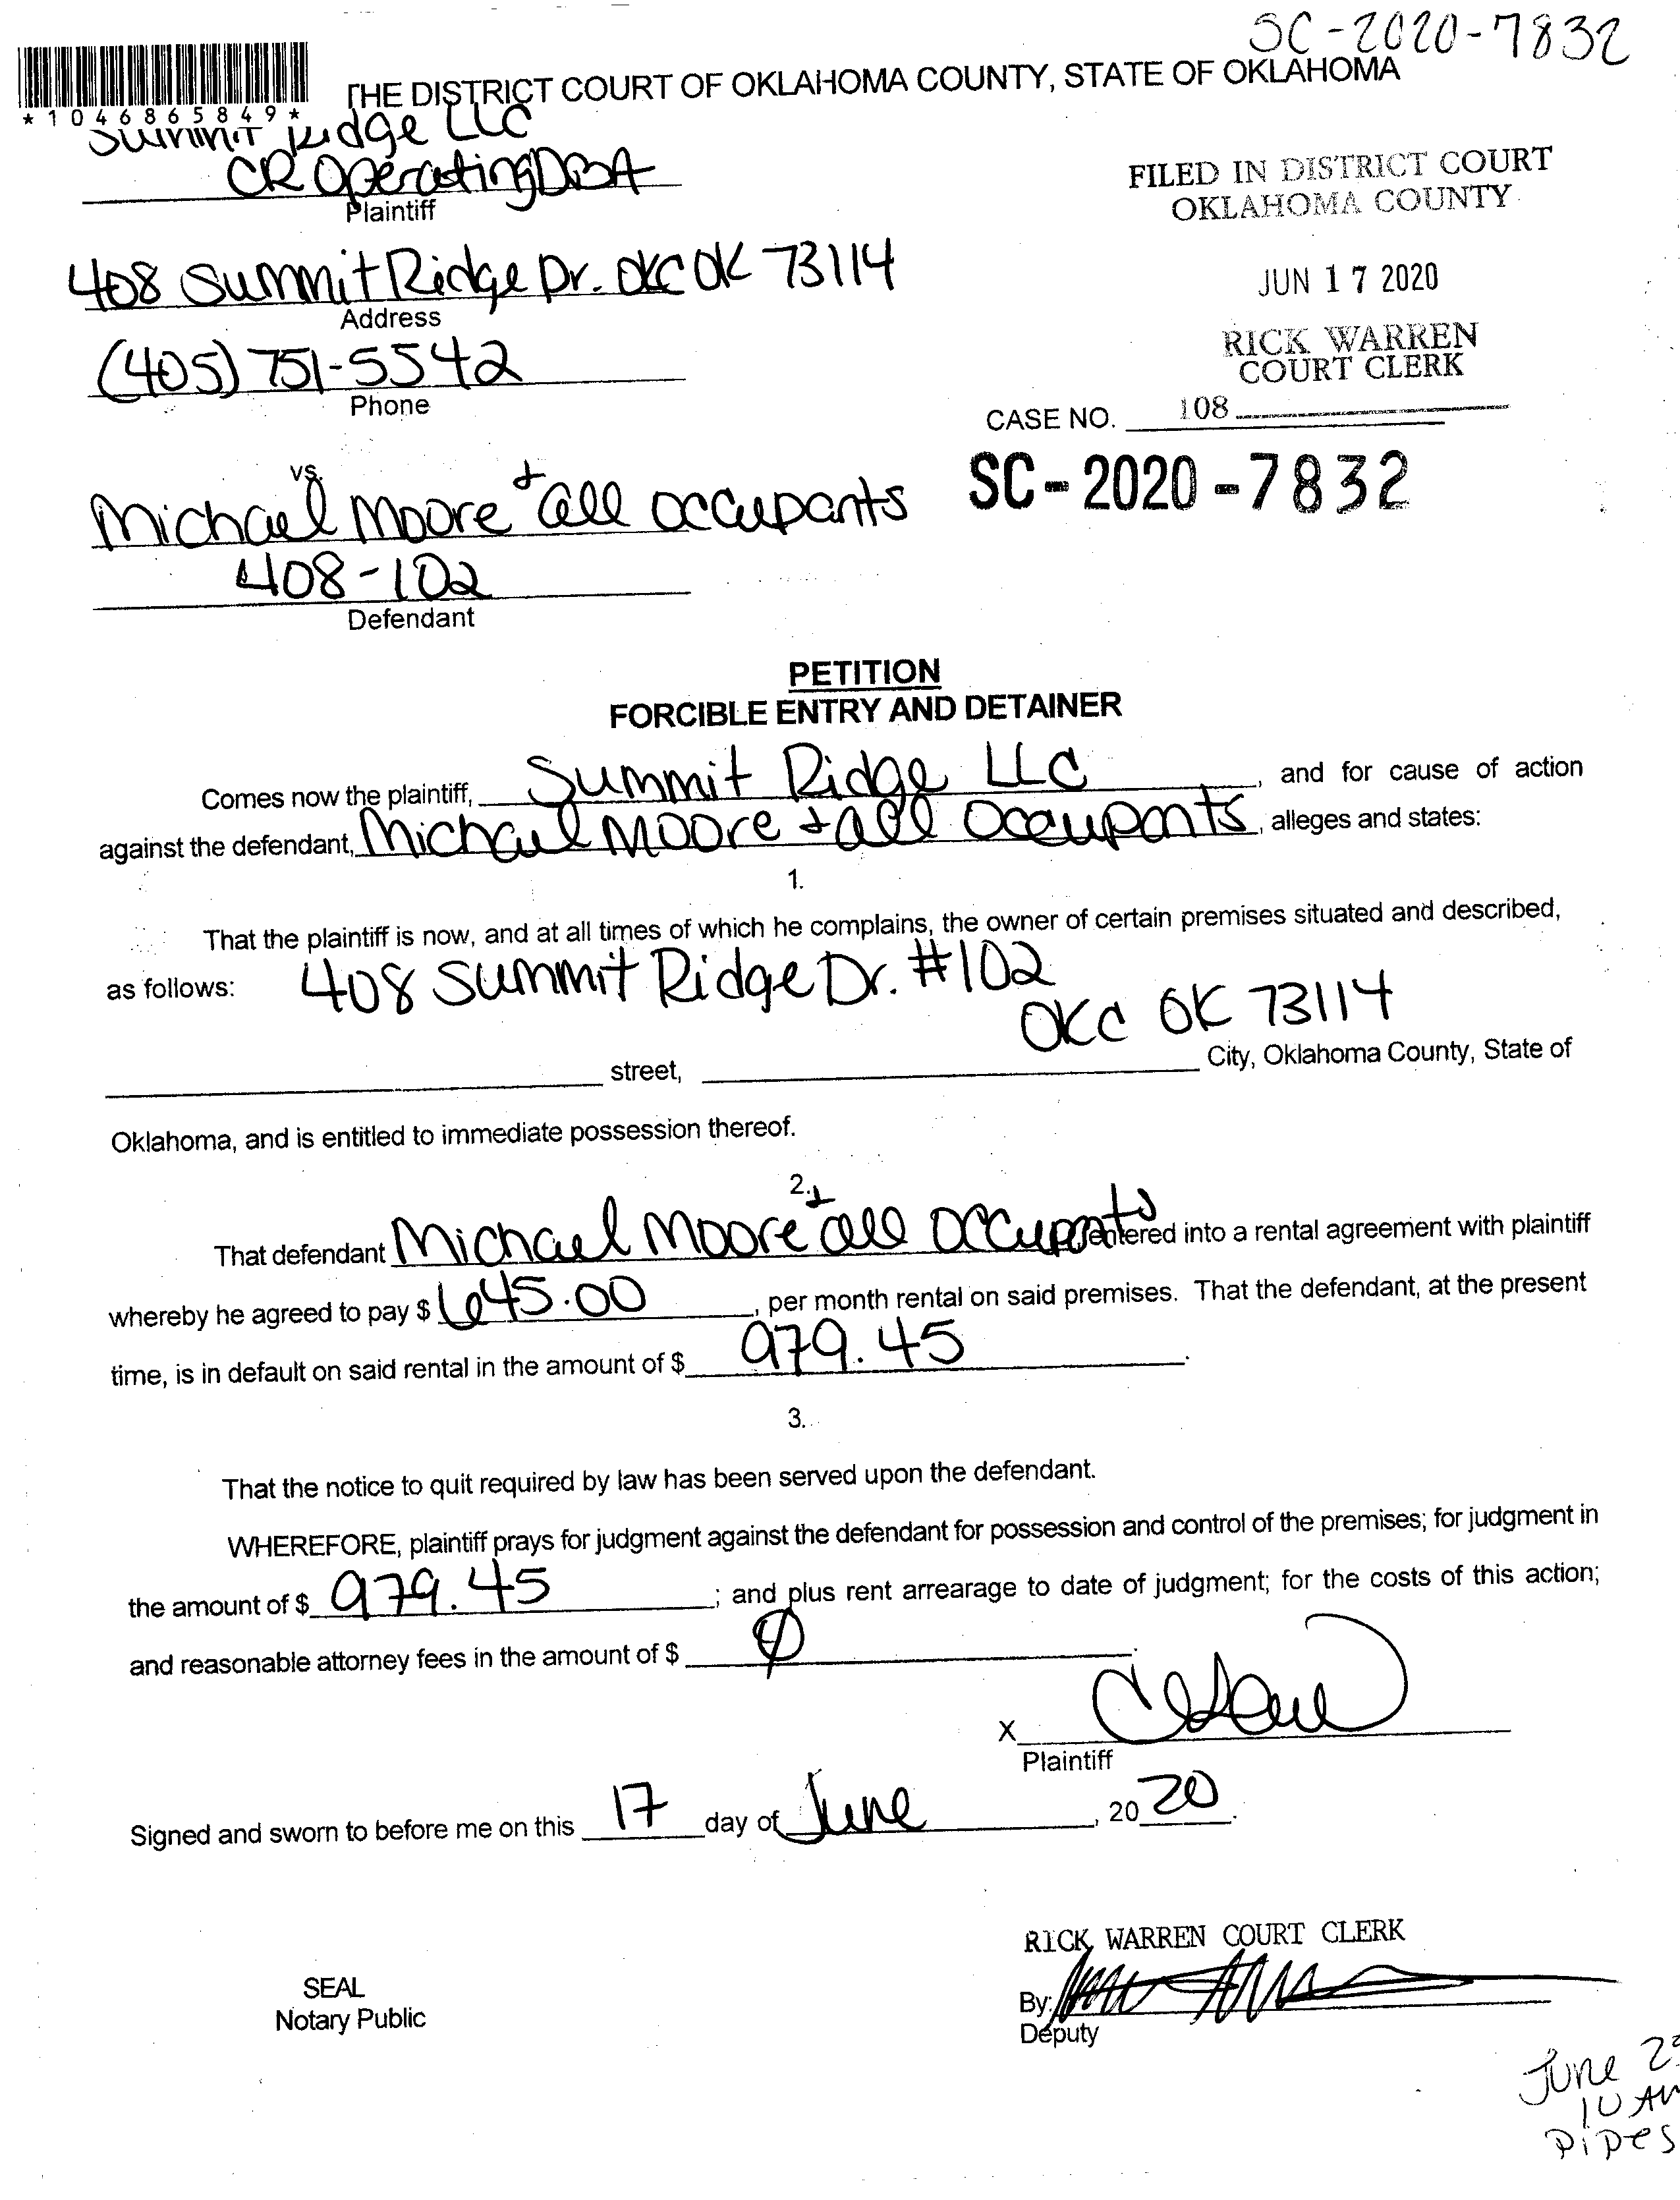 SC-2020-7832
THE DISTRICT COURT OF OKLAHOMA COUNTY, STATE OF OKLAHOMA
*1046865849*
Summit Ridge LLC
CR Operating DBA
Plaintiff
FILED IN DISTRICT COURT
OKLAHOMA COUNTY
408 Summit Ridge Dr. OKC OK 73114
Address
JUN 17 2020
(405) 751-5542
Phone
RICK WARREN
COURT CLERK
CASE NO. 108
SC-2020-7832
vs.
Michael Moore + all occupants
408-102
Defendant
PETITION
FORCIBLE ENTRY AND DETAINER
Comes now the plaintiff, Summit Ridge LLC, and for cause of action
against the defendant, Michael Moore + all Occupants, alleges and states:
1.
That the plaintiff is now, and at all times of which he complains, the owner of certain premises situated and described,
as follows: 408 Summit Ridge Dr. #102
OKC OK 73114
street, City, Oklahoma County, State of
Oklahoma, and is entitled to immediate possession thereof.
2.
That defendant Michael Moore + all Occupants, entered into a rental agreement with plaintiff
whereby he agreed to pay $ 645.00, per month rental on said premises. That the defendant, at the present
time, is in default on said rental in the amount of $ 979.45.
3.
That the notice to quit required by law has been served upon the defendant.
WHEREFORE, plaintiff prays for judgment against the defendant for possession and control of the premises; for judgment in
the amount of $ 979.45; and plus rent arrearage to date of judgment; for the costs of this action;
and reasonable attorney fees in the amount of $ 0.
X
Plaintiff
Signed and sworn to before me on this 17 day of June, 2020.
RICK WARREN COURT CLERK
SEAL
Notary Public
By:
Deputy
June
10 AM
Pipes